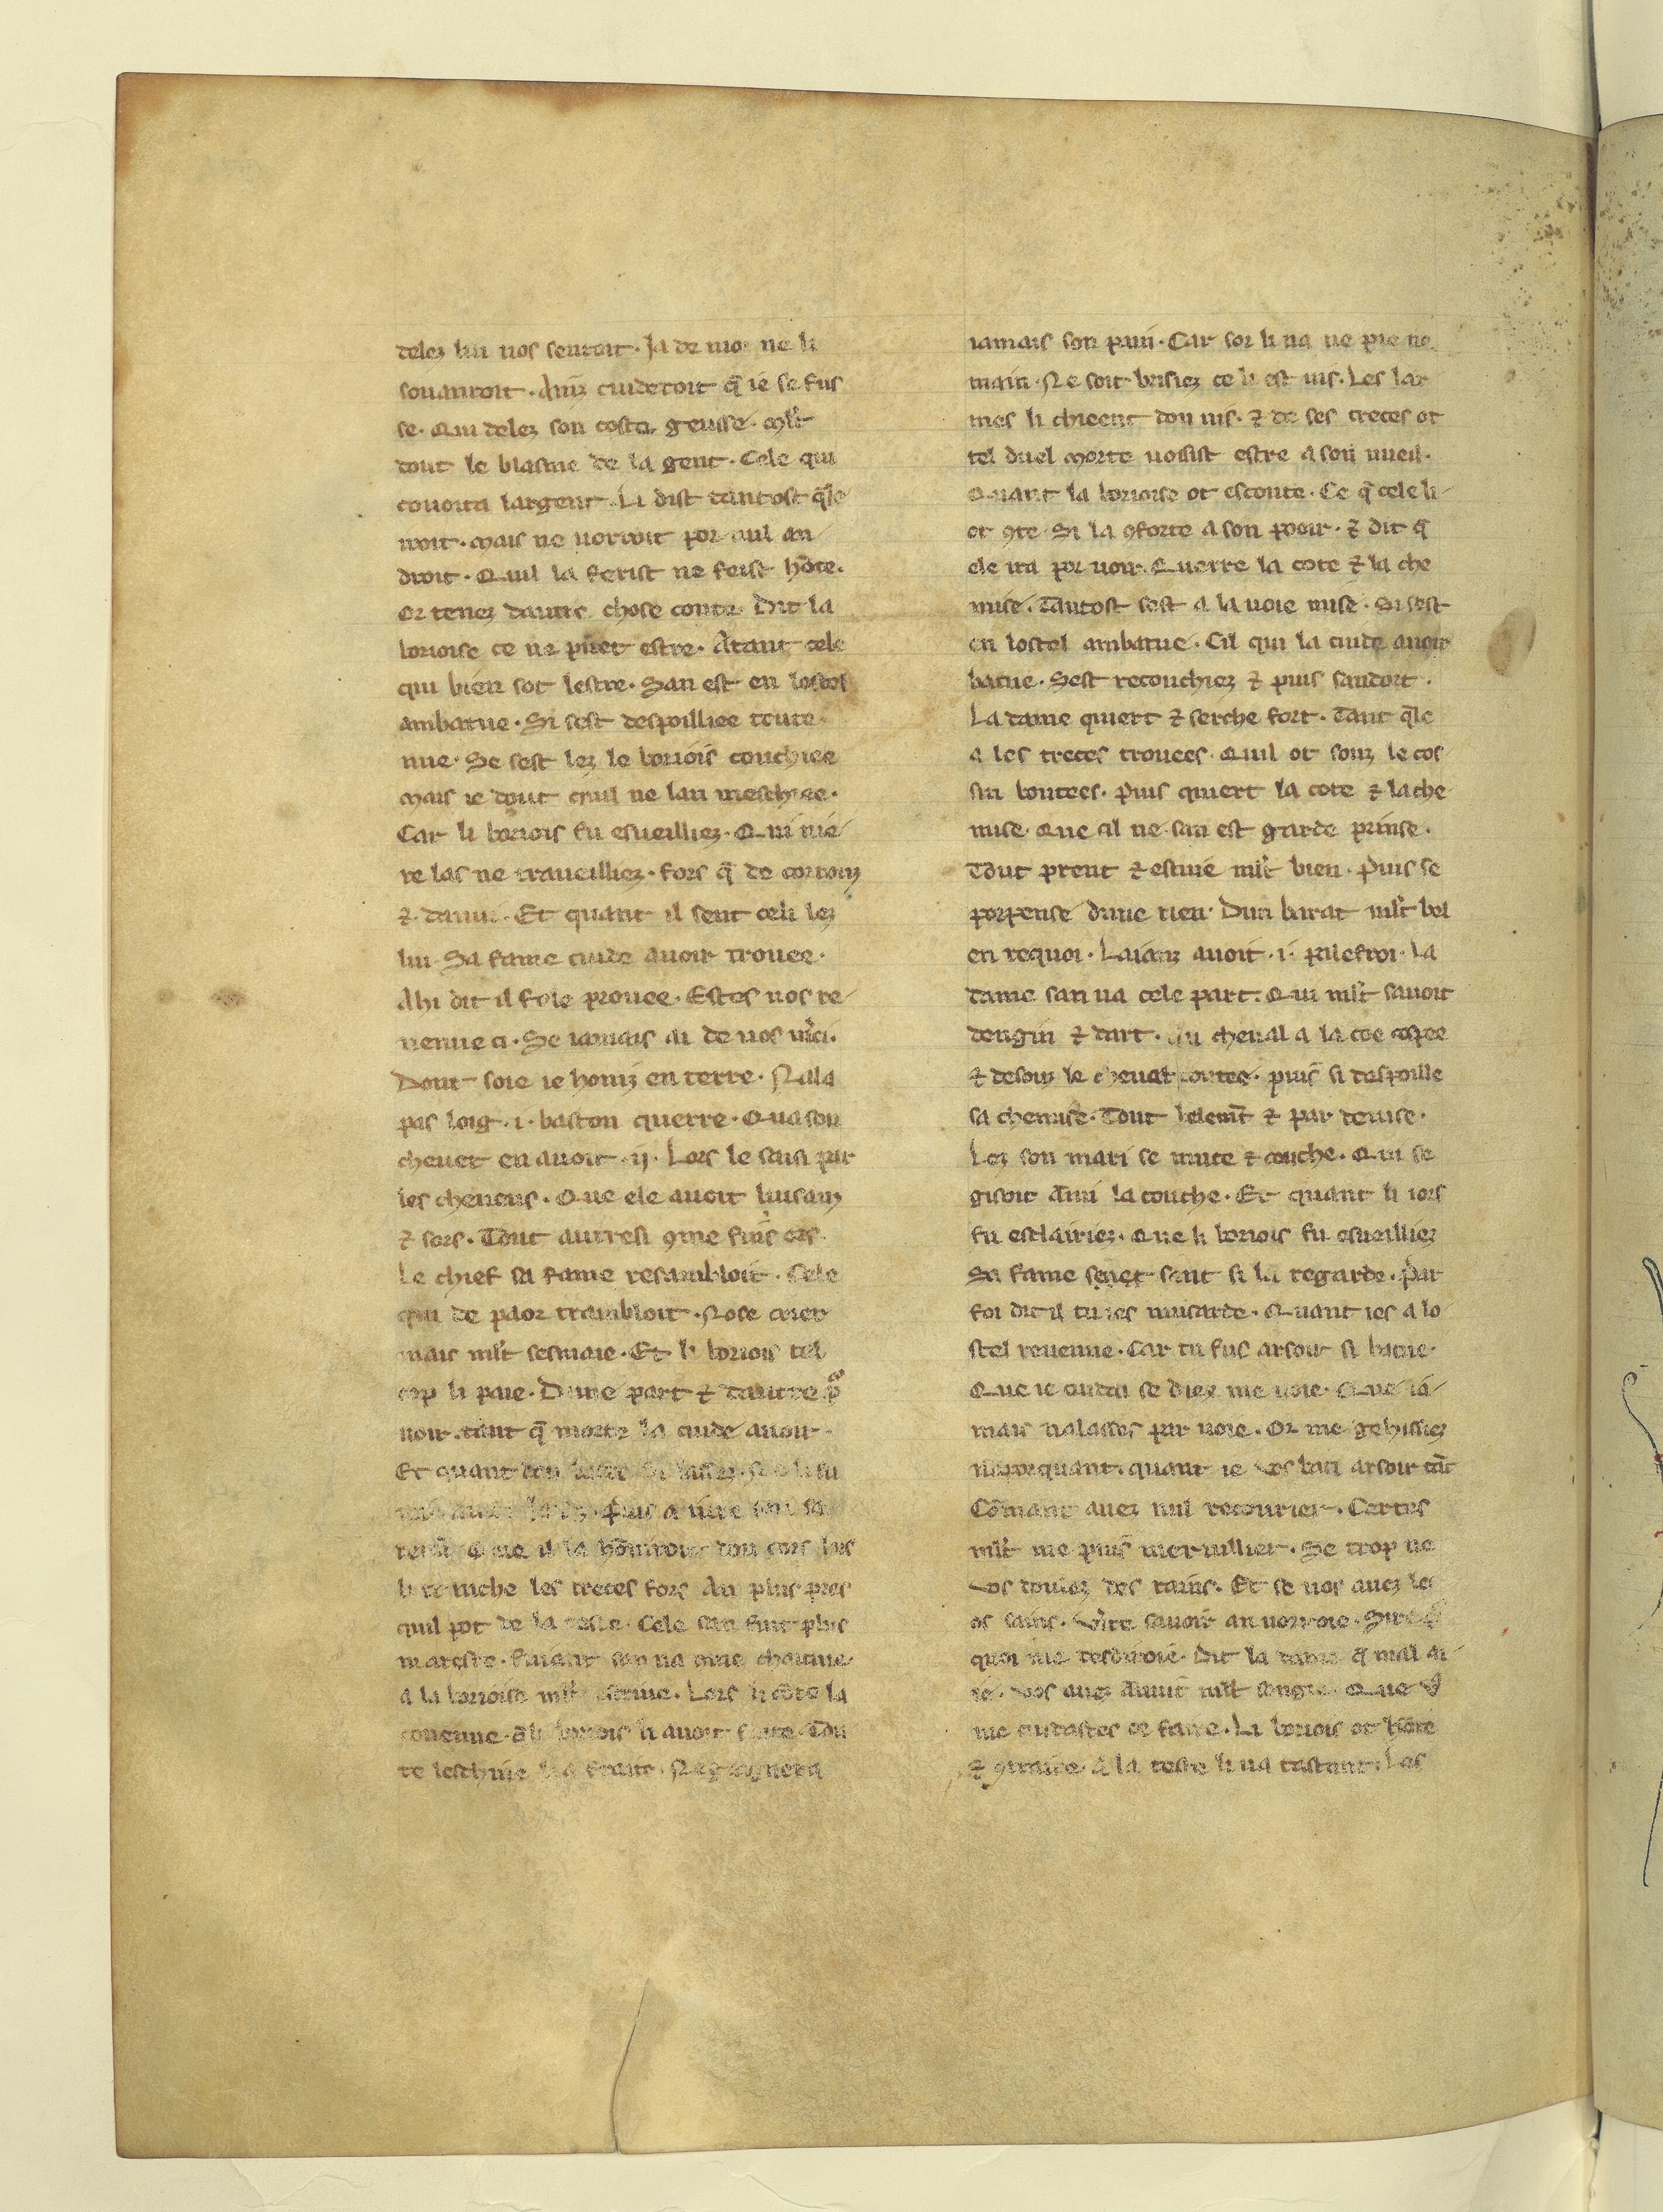 delez lui uos sentoit. Ja de moi ne li
souanroit. Ainz cuideroit q̃ ie se fus
se. Qui delez son coste geusse. mlt
dout le blasme de la gent. Cele qui
couoita largent. Li dist tantost q̃le
uoit. mais ne uorroit por nul an
droit. Quil la ferist ne feist hõte.
or tenez dautre chose conte. Dit la
borioise ce ne puet estre. Atant cele
qui bien sot lestre. San est en lostel
ambatue. Si sest despoilliee toute
nue. Se sest lez le boriois couchiee
mais ie dout quil ne lan meschiee.
Car li boriois fu esueilliez. Qui nie
re las ne traueilliez. fors q̃ de corrouz
⁊ danui. Et quant il sent celi lez
lui Sa fame cuide auoir trouee.
Ahi dit il fole prouee. Estes uos re
uenue ci. Se iamais ai de uos m̃ci.
Dont soie ie honiz en terre. Nala
pas loig .i. baston querre. Qua son
cheuet en auoit .ij. Lors le saisi par
les cheueus. Que ele auoit luisanz
⁊ sors. Tout autresi 9me fins ors
Le chief sa fame resambloit. Cele
qui de paor trambloit. Nose crier
mais mlt sesmaie. Et li boriois tel
cop li paie. Dune part ⁊ dautre p̃
uoir. tant q̃ morte la cuide auoir.
Et quant dou
li tranche les treces fors Au plus pres
quil pot de la teste. Cele san fuit plus
nen areste. fuiant san ua
a la borioise mlt. Lors li cõte la
couenue. q̃ li boriois li auoit faite. Tou
te leschine li a fraite. Ne gaignera
iamais son pain. Car sor li na ne pie ne
main. Ne soit brisiez ce li est uis. Les lar
mes li chieent dou uis. ⁊ de ses treces ot
tel duel morte uossist estre a son uueil.
Quant la borioise ot escoute. Ce q̃ cele li
ot 9te. Si la 9forte a son pooir. ⁊ dit q̃
ele ira por uoir. Querre la cote ⁊ la che
mise. Tantost sest a la uoie mise. Si sest
en lostel ambatue. Cil qui la cuide auoir
batue. Sest recouchiez ⁊ puis sandort.
La dame quiert ⁊ serche fort. Tant q̃le
a les treces trouees. Quil ot souz le cos
sin boutees. puis quiert la cote ⁊ la che
mise. Que cil ne san est garde prinse.
Tout prent ⁊ estuie mlt bien. Puis se
porpense dune rien. Dun barat mlt bel
en requoi. Laianz auoit .i. palefroi. La
dame san ua cele part. Qui mlt sauoit
dengin ⁊ dart. Au cheual a la coe copee
⁊ desouz le cheuet boutee. puis si despoille
sa chemise. Tout belemt̃ ⁊ par deuise.
Lez son mari se mute ⁊ couche. Qui se
gisoit ãmi la couche. Et quant li iors
fu esclairiez. Que li boriois fu esueilliez
Sa fame senet sant si la regarde. Par
foi dit il tu ies musarde. Quant ies a lo
stel reuenue. Car tu fus arsoir si batue.
Que ie cuidai se diex me uoie. Que ia
mais nalasses par uoie. Or me gehissiez
neporquant. quant ie uos bati arsoir tãt
Cõmant auez nul recourier. Certes
mlt me puis merueillier. Se trop ne
uos doulez des rains. Et se uos auez les
os sains. uoire sauoir an uorroie. Sire
quoi me desduroie. Dit la dame q̃ mal ai
ie. Uos auez mlt songie. Que
me cuidastes ce faire. Li boriois ot hõte
⁊ 9traire. A la teste li ua tastant. Les